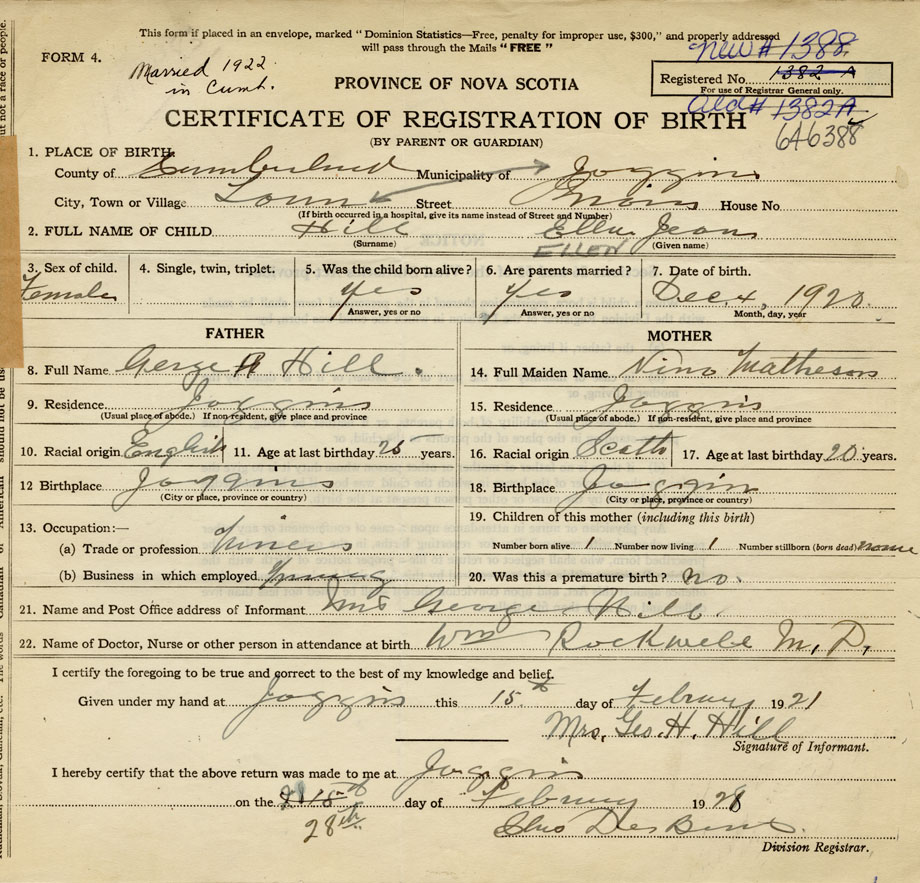 This form if placed in an envelope, marked "Dominion Statistics—Free, penalty for improper use, $300," and properly addressed
will pass through the Mails "FREE"
New # 1388
FORM 4.
Married 1922
in Cumb.
PROVINCE OF NOVA SCOTIA
Registered No. 1382 A
For use of Registrar General only.
Old # 1382A
CERTIFICATE OF REGISTRATION OF BIRTH
646388
(BY PARENT OR GUARDIAN)
1. PLACE OF BIRTH
County of Cumberland Municipality of Joggins
City, Town or Village Street House No.
(If birth occurred in a hospital, give its name instead of Street and Number)
2. FULL NAME OF CHILD Hill Ellen Jean
(Surname) ELLEN (Given name)
3. Sex of child. 4. Single, twin, triplet. 5. Was the child born alive? 6. Are parents married? 7. Date of birth.
Female yes yes Dec 4, 1920.
Answer, yes or no Answer, yes or no Month, day, year
FATHER MOTHER
8. Full Name H Hill. 14. Full Maiden Name Matheson
9. Residence Joggins 15. Residence Joggins
(Usual place of abode.) If non-resident, give place and province (Usual place of abode.) If non-resident, give place and province
10. Racial origin English 11. Age at last birthday years. 16. Racial origin 17. Age at last birthday 20 years.
12 Birthplace Joggins 18. Birthplace Joggin
(City or place, province or country) (City or place, province or country)
13. Occupation:— 19. Children of this mother (including this birth)
(a) Trade or profession Number born alive 1 Number now living 1 Number stillborn (born dead)
(b) Business in which employed 20. Was this a premature birth? no.
21. Name and Post Office address of Informant Mrs George Hill.
22. Name of Doctor, Nurse or other person in attendance at birth Wm Rockwell M. D.
I certify the foregoing to be true and correct to the best of my knowledge and belief.
Given under my hand at Joggins this 15th day of 1921
Mrs. Geo. H. Hill
Signature of Informant.
I hereby certify that the above return was made to me at Joggins
on the 15th day of 19
28th
Division Registrar.